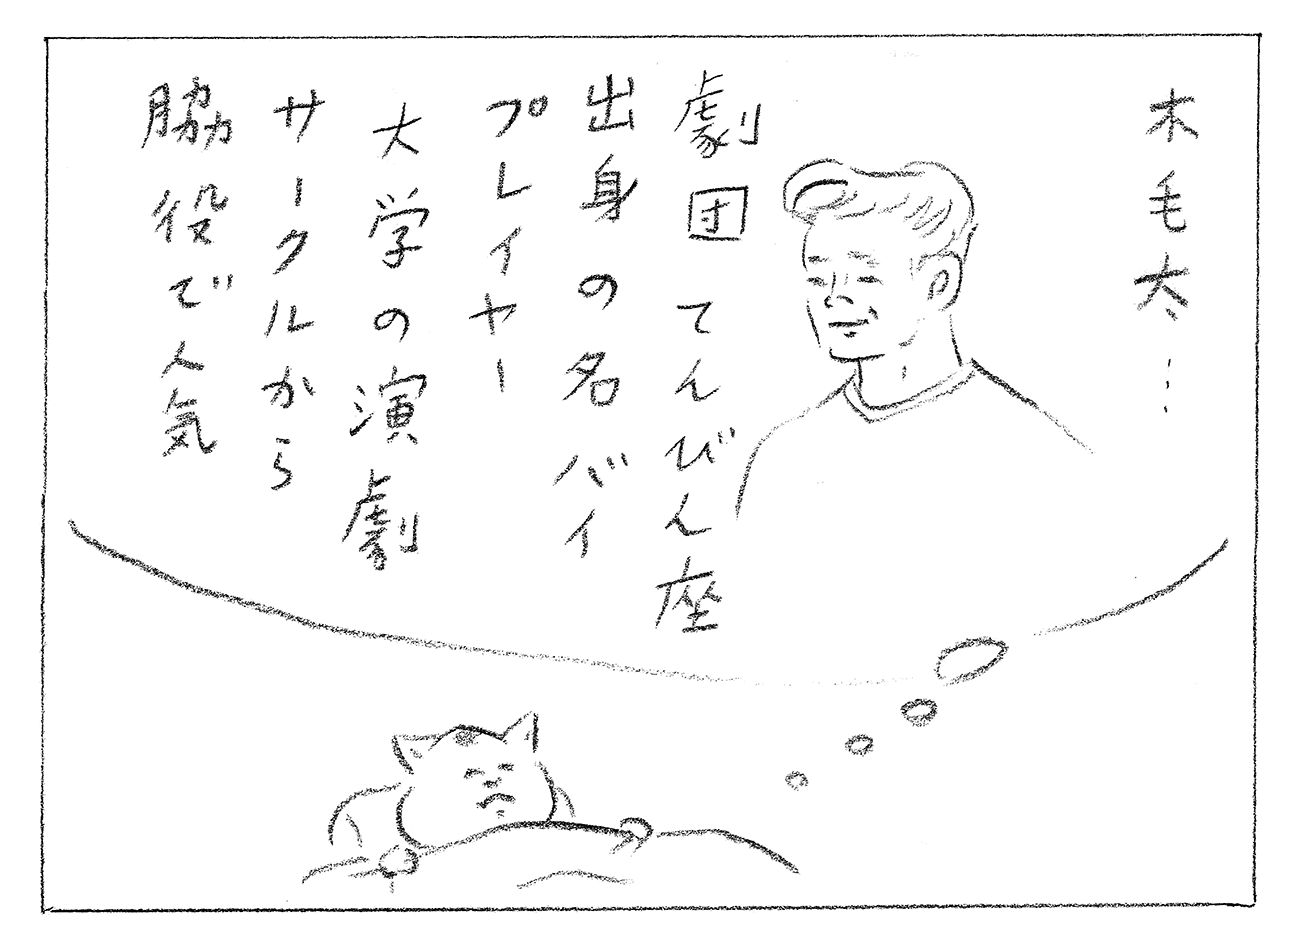 木毛太…
劇団 てんびん座
出身の名バイ
プレイヤー
大学の演劇
サークルから
脇役で人気